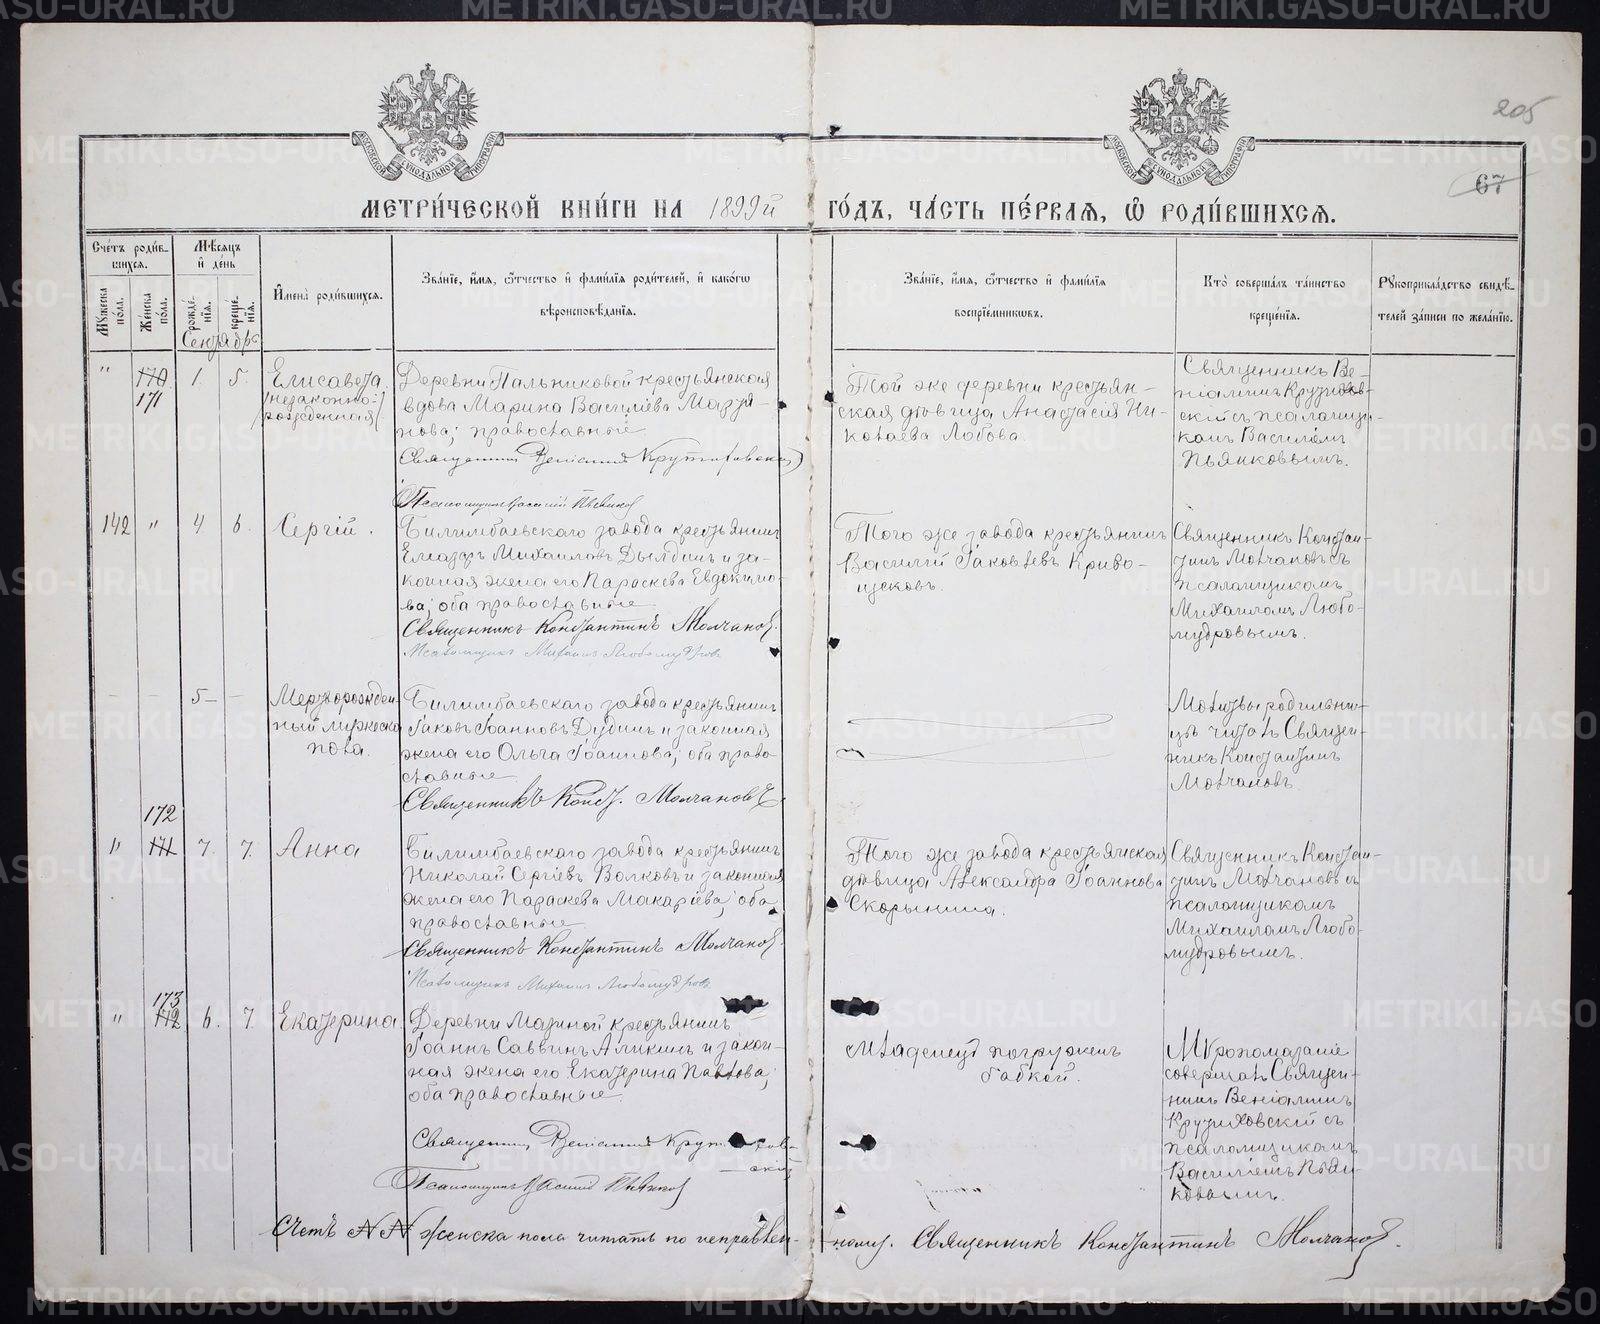 205
67
МЕТРИ́ЧЕСКОЙ КНИ́ГИ НА 1899й ГО́ДЪ, ЧА́СТЬ ПЕ́РВАЯ, Ѡ҆ РОДИ́ВШИХСЯ.
Сче́тъ роди́вшихся.
Му́жеска по́ла.
Же́нска по́ла.
Мѣ́сяцъ и҆ де́нь
рожде́нїя.
креще́нїя.
Сентябрь
И҆мена̀ роди́вшихся.
Зва́нїе, и҆́мя, ѻ҆́тчество и҆ фами́лїя роди́телей, и҆ како́гѡ
вѣроисповѣ́данїя.
Зва́нїе, и҆́мя, ѻ҆́тчество и҆ фами́лїя
воспрїе́мникѡвъ.
Кто̀ соверша́лъ та́инство
креще́нїя.
Рꙋкоприкла́дство свидѣ́телей за́писи по жела́нїю.
" 170. 171 1. 5.
Елисавета
(незаконнорожденная)
Деревни Пальниковой крестьянская
вдова Марина Василіева
православные
Священникъ Веніаминъ Крутиховскій
Псаломщикъ Василій Пьянковъ
Той же деревни крестьянская дѣвица Анастасія Николаева Лобова.
Священникъ Веніаминъ Крутиховскій съ псаломщикомъ Василіемъ
Пьянковымъ.
142 " 4 6.
Сергій.
Билимбаевскаго завода крестьянинъ
Елиазаръ Михаиловъ Дылдинъ и законная жена его Параскева Евдокимова; оба православные
Священникъ Константинъ Молчановъ.
Псаломщикъ Михаилъ Любомудровъ
Того же завода крестьянинъ
Василій Іаковлевъ Кривощековъ.
Священникъ Константинъ Молчановъ съ
псаломщикомъ
Михаиломъ Любомудровымъ.
– – 5 –
Мертворожденный мужеска
пола.
Билимбаевскаго завода крестьянинъ
Іаковъ Іоанновъ Дудинъ и законная
жена его Ольга Іоаннова; оба православные
Священникъ Конст. Молчановъ
Молитвы родильницѣ читалъ Священникъ Константинъ
Молчановъ.
" 172 171 7. 7.
Анна
Билимбаевскаго завода крестьянинъ
Николай Сергіевъ Волковъ и законная
жена его Параскева Макаріева; оба
православные
Священникъ Константинъ Молчановъ.
Псаломщикъ Михаилъ Любомудровъ
Того же завода крестьянская
дѣвица Александра Іоаннова
Скорынина.
Священникъ Константинъ Молчановъ съ
псаломщикомъ
Михаиломъ Любомудровымъ.
" 173 172 6. 7.
Екатерина
Деревни крестьянинъ
Іоаннъ Саввинъ Аликинъ и законная жена его Екатерина Павлова;
оба православные.
Священникъ Веніаминъ Крутиховскій
Псаломщикъ Василій Пьянковъ
Младенецъ погруженъ
бабкой.
Мѵропомазаніе
совершалъ Священникъ Веніаминъ
Крутиховскій съ
псаломщикомъ
Василіемъ Пьянковымъ.
Счетъ №№ женска пола читать по исправленному. Священникъ Константинъ Молчановъ.
METRIKI.GASO-URAL.RU